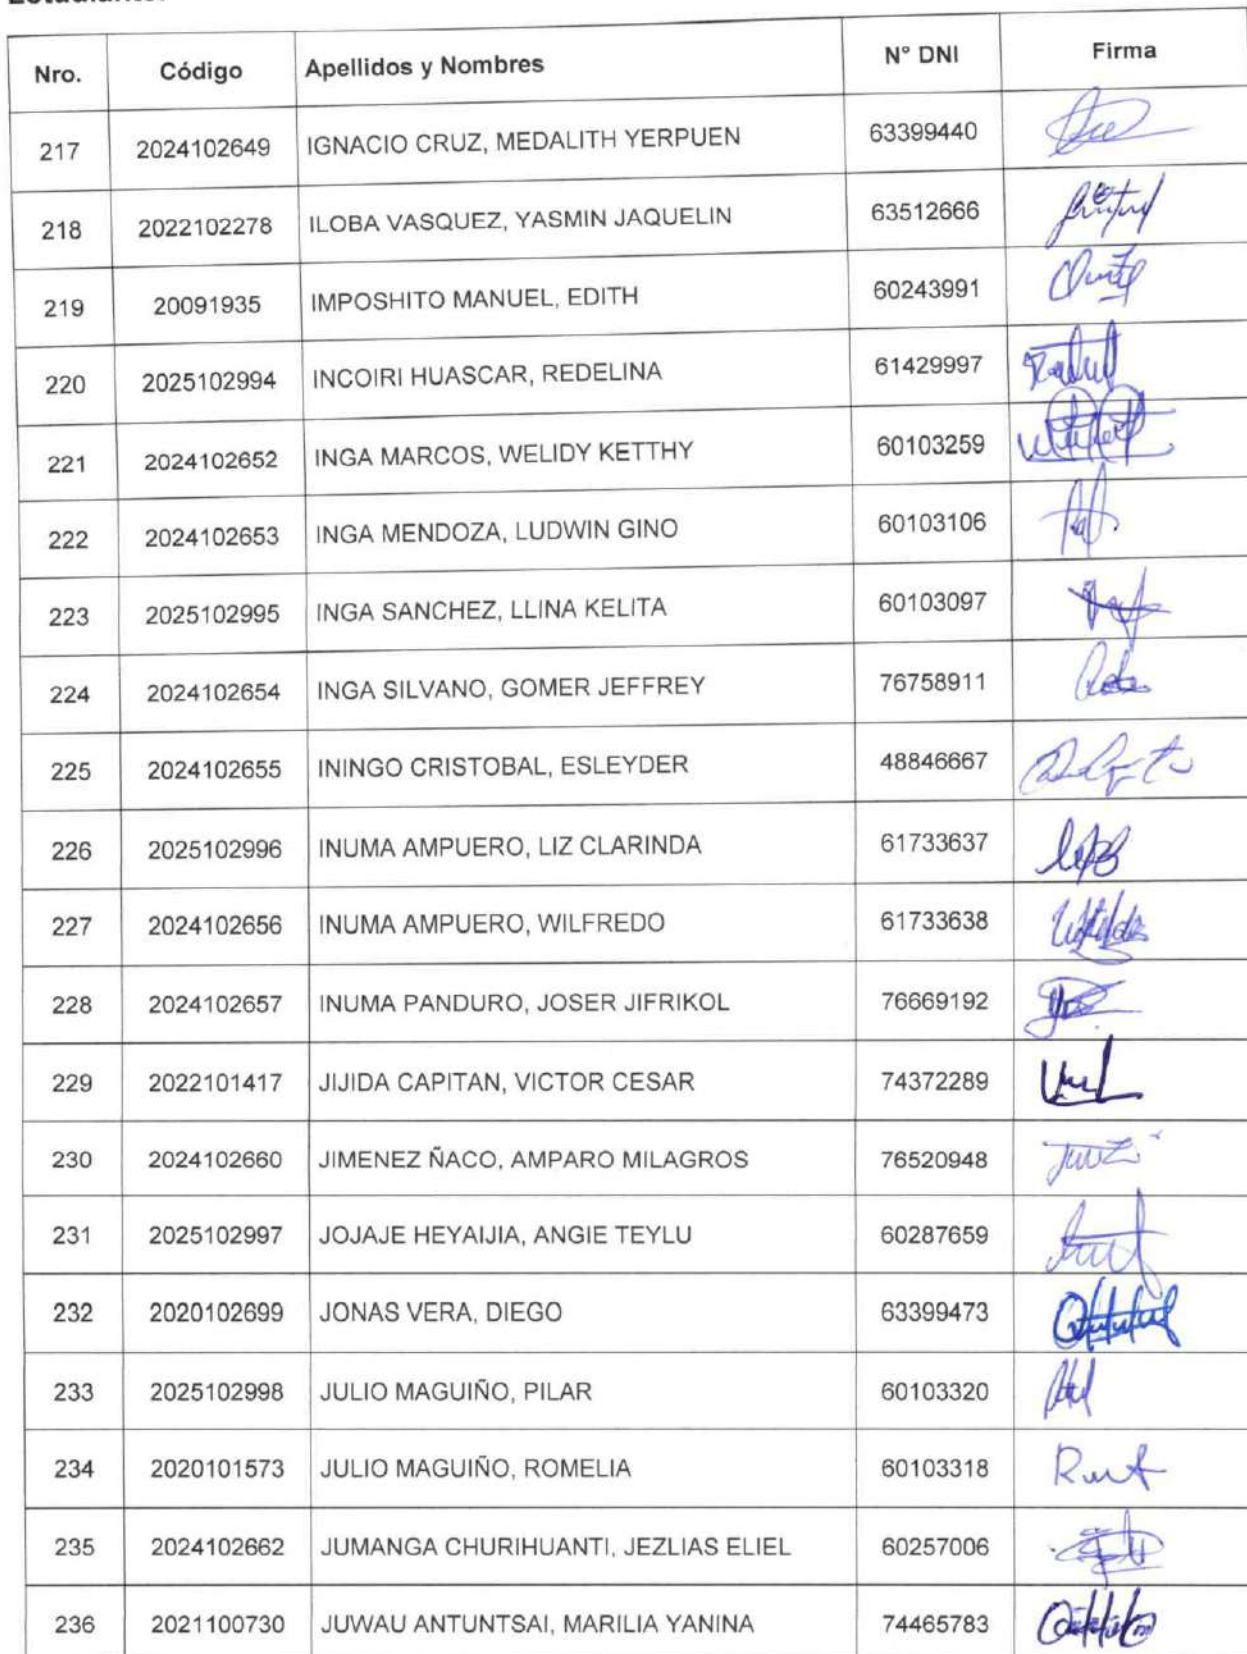 Nro. Código Apellidos y Nombres N° DNI Firma
217 2024102649 IGNACIO CRUZ, MEDALITH YERPUEN 63399440
218 2022102278 ILOBA VASQUEZ, YASMIN JAQUELIN 63512666
219 20091935 IMPOSHITO MANUEL, EDITH 60243991
220 2025102994 INCOIRI HUASCAR, REDELINA 61429997
221 2024102652 INGA MARCOS, WELIDY KETTHY 60103259
222 2024102653 INGA MENDOZA, LUDWIN GINO 60103106
223 2025102995 INGA SANCHEZ, LLINA KELITA 60103097
224 2024102654 INGA SILVANO, GOMER JEFFREY 76758911
225 2024102655 ININGO CRISTOBAL, ESLEYDER 48846667
226 2025102996 INUMA AMPUERO, LIZ CLARINDA 61733637
227 2024102656 INUMA AMPUERO, WILFREDO 61733638
228 2024102657 INUMA PANDURO, JOSER JIFRIKOL 76669192
229 2022101417 JIJIDA CAPITAN, VICTOR CESAR 74372289
230 2024102660 JIMENEZ ÑACO, AMPARO MILAGROS 76520948
231 2025102997 JOJAJE HEYAIJIA, ANGIE TEYLU 60287659
232 2020102699 JONAS VERA, DIEGO 63399473
233 2025102998 JULIO MAGUIÑO, PILAR 60103320
234 2020101573 JULIO MAGUIÑO, ROMELIA 60103318
235 2024102662 JUMANGA CHURIHUANTI, JEZLIAS ELIEL 60257006
236 2021100730 JUWAU ANTUNTSAI, MARILIA YANINA 74465783